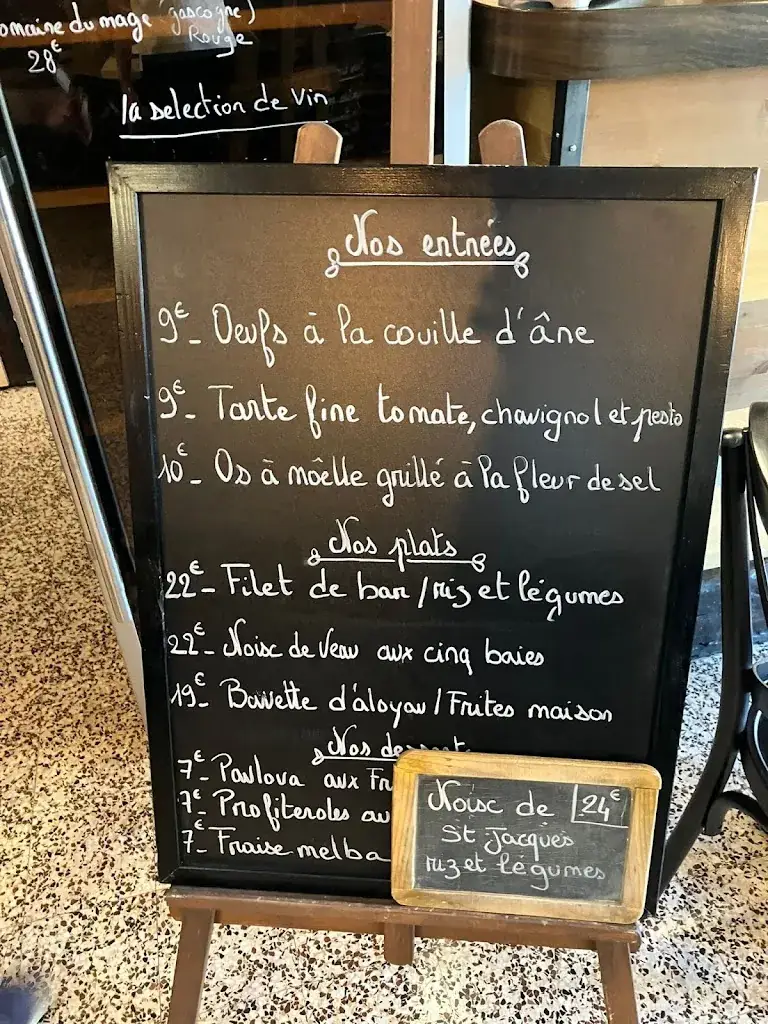 omaine du mage (gascogne)
Rouge
28€
la selection de vin
Nos entrées
9€- Oeufs à la couille d'âne
9€- Tarte fine tomate, chavignol et pesto
10€- Os à môelle grillé à la fleur de sel
Nos plats
22€- Filet de bar / riz et légumes
22€- Noisc de Veau aux cinq baies
19€- Bavette d'aloyau / Frites maison
Nos
7€- Pavlova aux Fr
7€- Profiteroles au
7€- Fraise melba
Noisc de 24€
St Jacques
riz et légumes